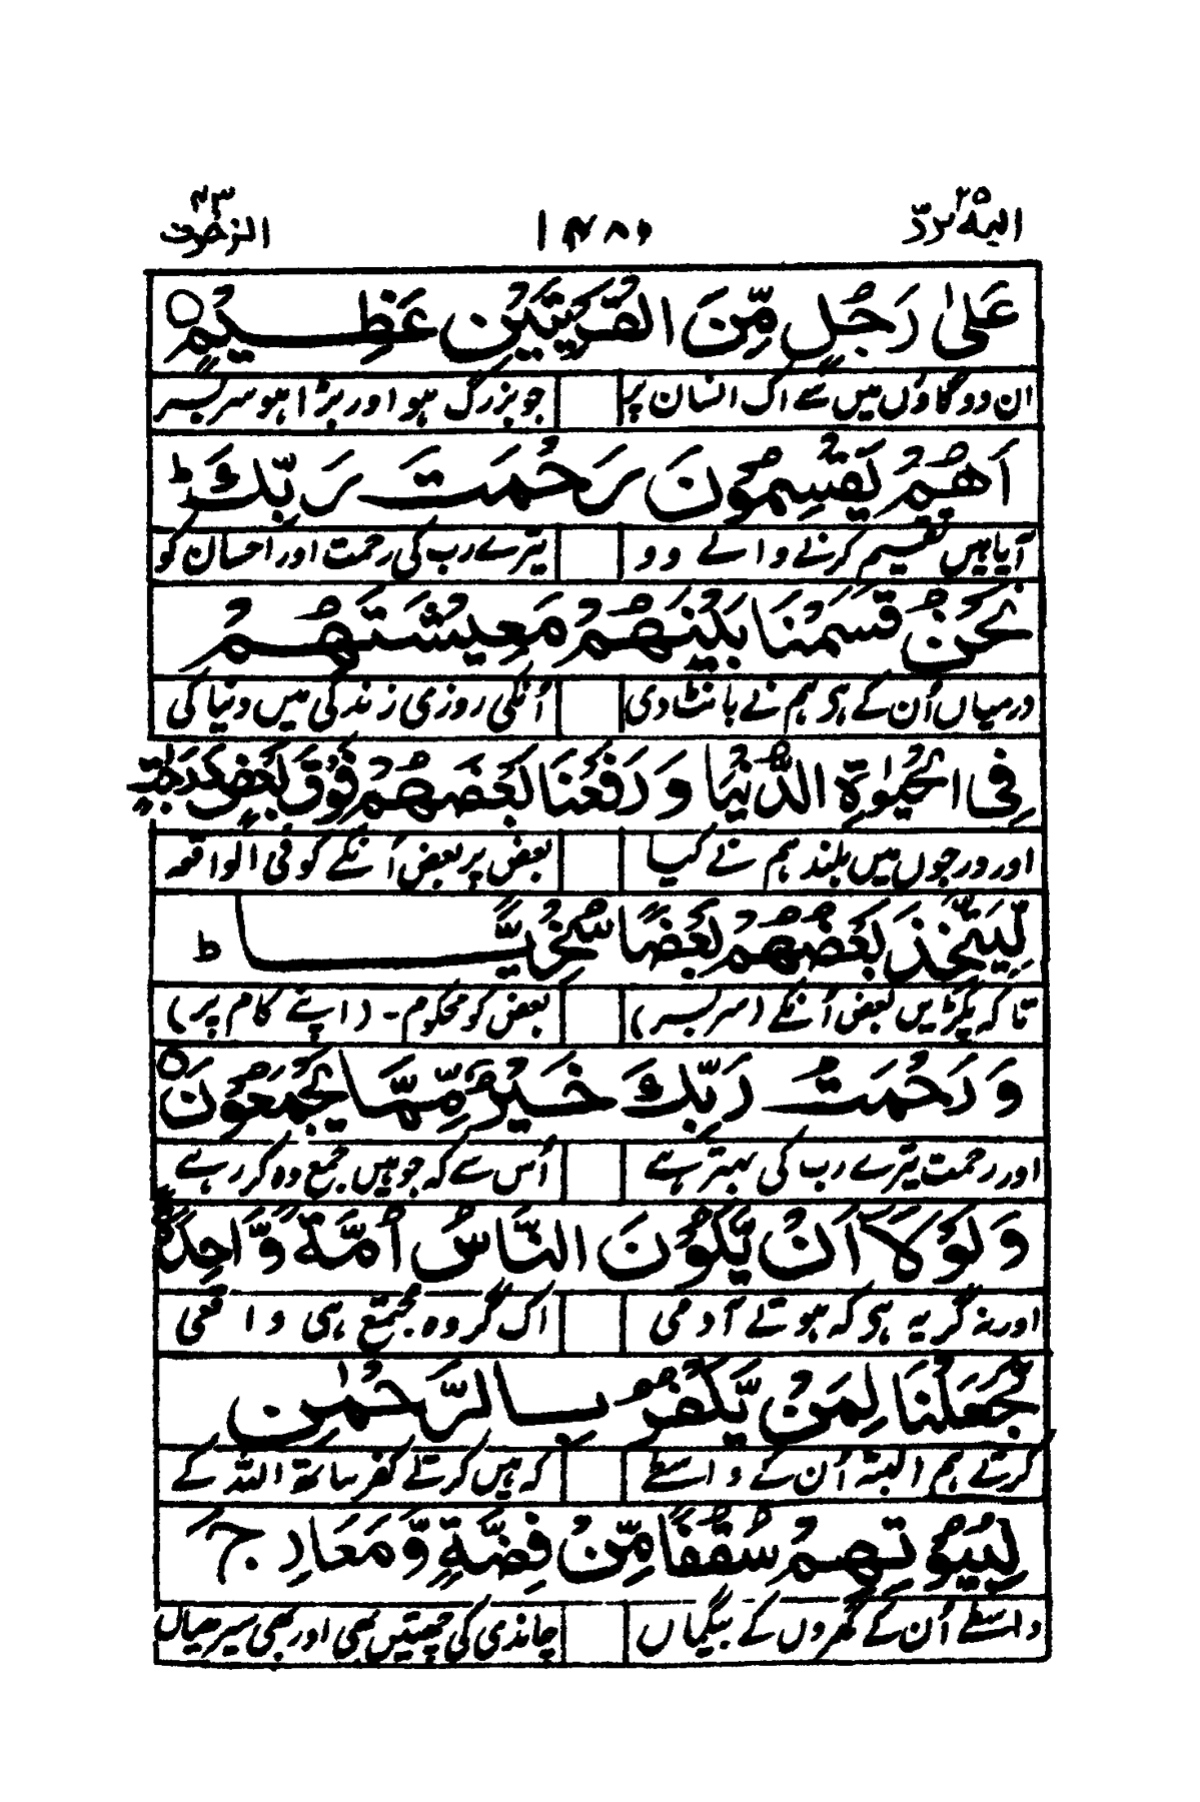 الیه یردّ ۲۵ ۱۴۸۵ الزخرف ۴۳
عَلٰى رَجُلٍ مِّنَ الْقَرْيَتَيْنِ عَظِيْمٍ ○
ان دو گاؤں میں سے اک انسان پر جو بزرگ ہو اور بڑا ہو سر بسر
اَهُمْ يَقْسِمُوْنَ رَحْمَتَ رَبِّكَ ؕ
آیا ہیں تقسیم کرنے والے وو تیرے رب کی رحمت اور احسان کو
نَحْنُ قَسَمْنَا بَيْنَهُمْ مَّعِيْشَتَهُمْ
درمیاں اُن کے ہی ہم نے بانٹ دی اُنکی روزی زندگی میں دنیا کی
فِى الْحَيٰوةِ الدُّنْيَا وَ رَفَعْنَا بَعْضَهُمْ فَوْقَ بَعْضٍ دَرَجٰتٍ
اور درجوں میں بلند ہم نے کیا بعض پر بعض اُنکے کو فی الواقعہ
لِّيَتَّخِذَ بَعْضُهُمْ بَعْضًا سُخْرِيًّا ؕ
تا کہ پکڑیں بعض اُنکے (سر بسر) بعض کو محکوم۔ (اپنے کام پر)
وَ رَحْمَتُ رَبِّكَ خَيْرٌ مِّمَّا يَجْمَعُوْنَ ○
اور رحمت تیرے رب کی بہتر ہے اُس سے کہ جو ہیں جمع وہ کر رہے
وَ لَوْ لَاۤ اَنْ يَّكُوْنَ النَّاسُ اُمَّةً وَّاحِدَةً
اور نہ گر یہ ہی کہ ہوتے آدمی اک گروہ مجتمع ہی واقعی
لَّجَعَلْنَا لِمَنْ يَّكْفُرُ بِالرَّحْمٰنِ
کرتے ہم البتہ اُن کے واسطے کہ ہیں کرتے کفر ساتھ اللہ کے
لِبُيُوْتِهِمْ سُقُفًا مِّنْ فِضَّةٍ وَّ مَعَارِجَ
واسطے اُن کے گھروں کے بیگماں چاندی کی چھتیں بھی اور بھی سیڑھیاں